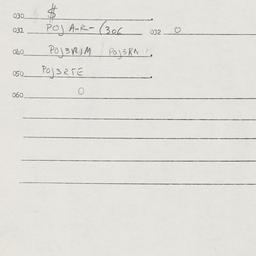 030 $
031 POJ A-R- (306 032 0
040 POJ3RJM POJ3RN
050 POJ3RTE
060 0